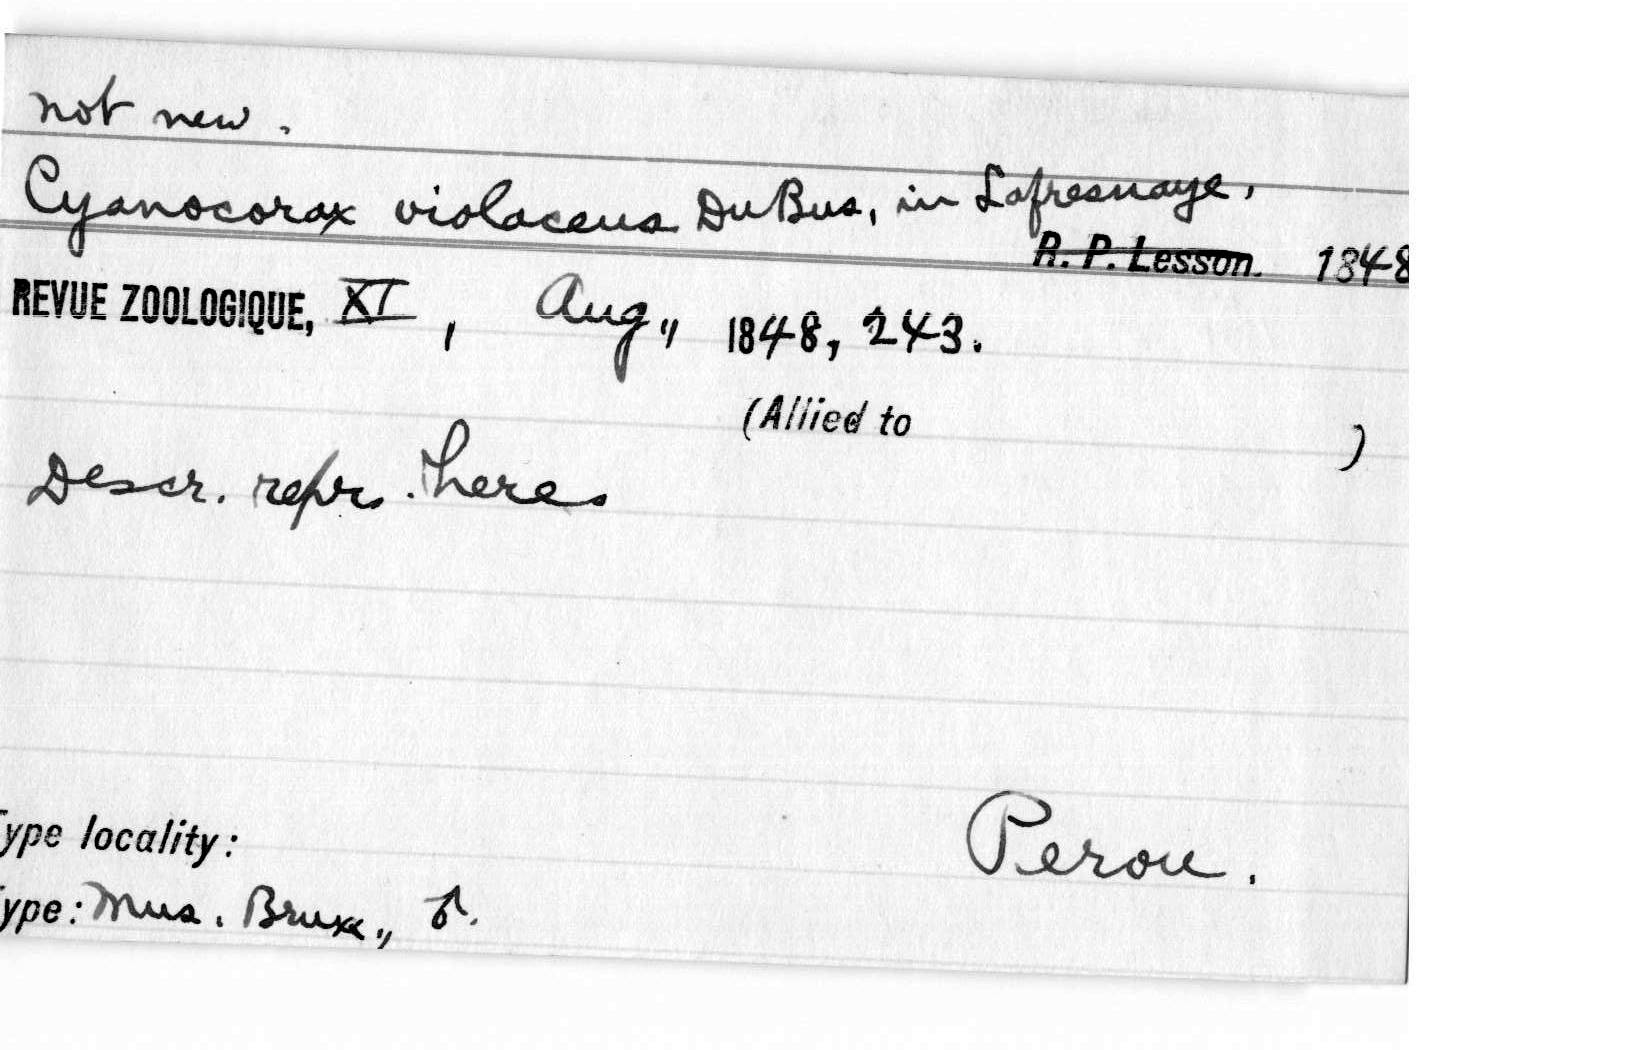 not new.
Cyanocorax violaceus DuBus, in Lafresnaye,
R. P. Lesson. 1848
REVUE ZOOLOGIQUE, XI, Aug., 1848, 243.
(Allied to )
Descr. repr. here.
ype locality: Perou.
ype: Mus. Brux., ♂.